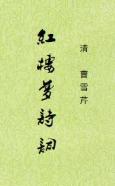 清 曹雪芹
紅樓夢詩詞